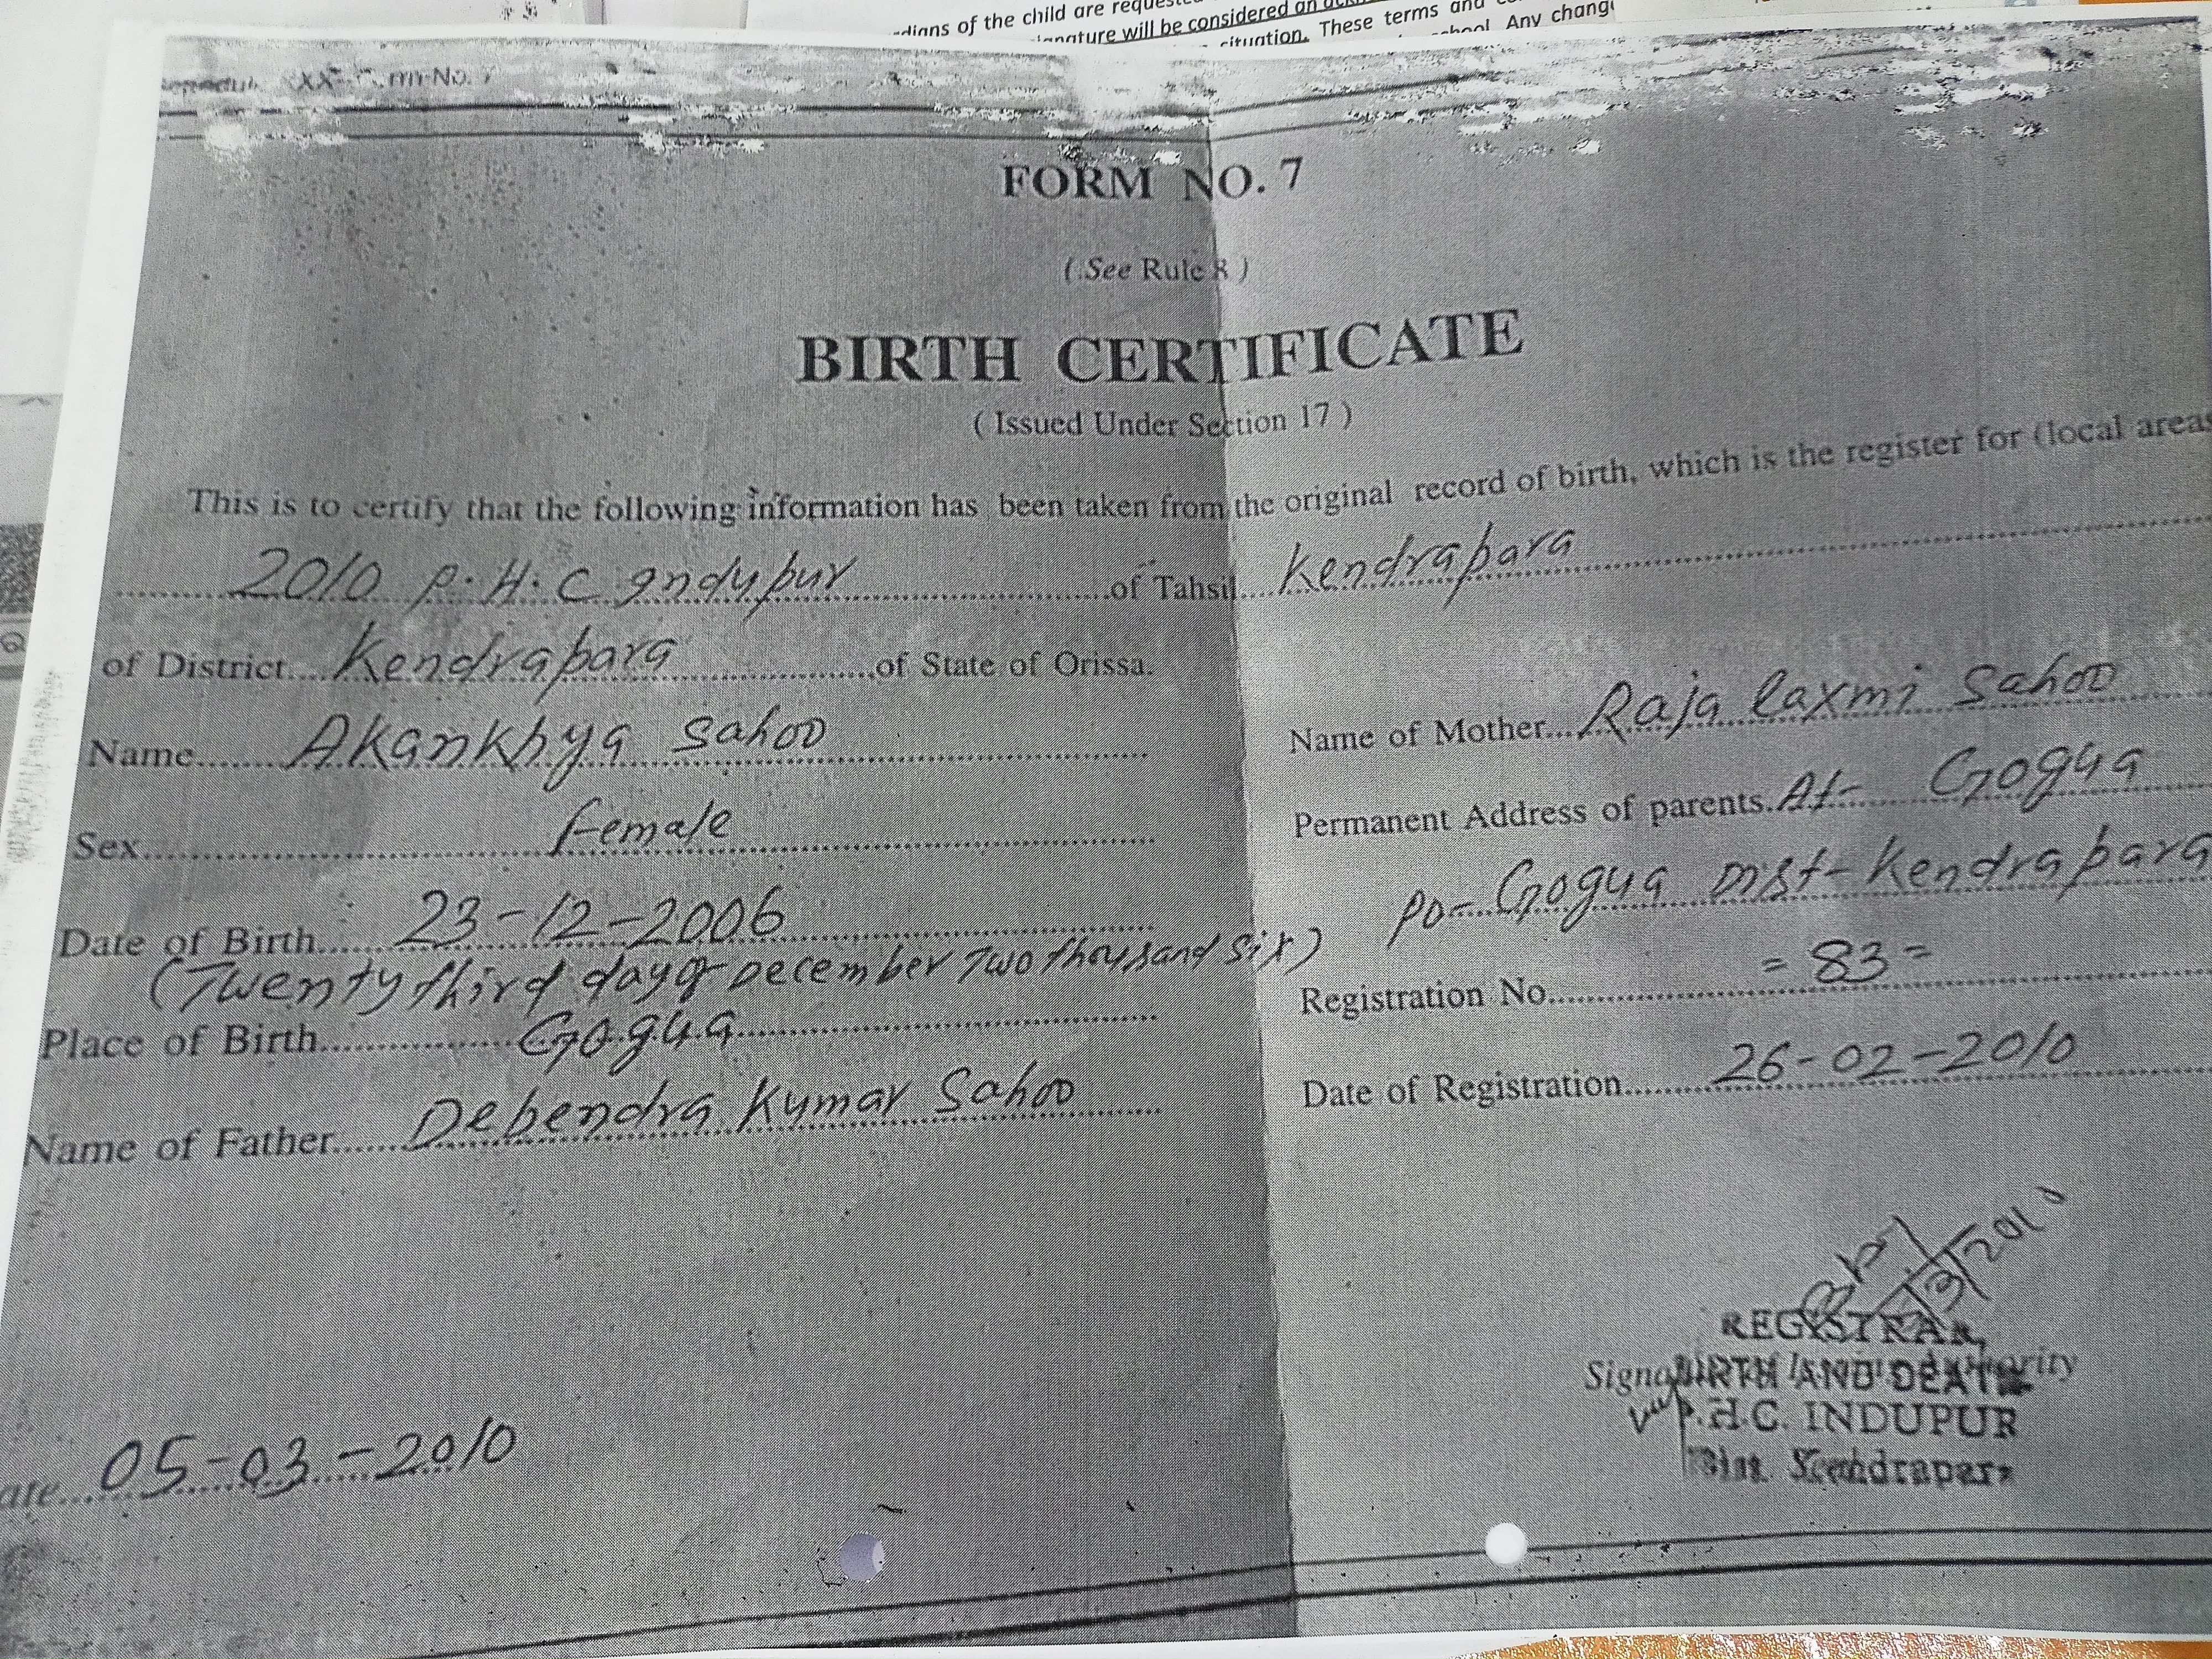 dians of the child are
nature will be considered an
situation. These terms and
Any chang
No. 7
FORM NO. 7
(See Rule 8)
BIRTH CERTIFICATE
(Issued Under Section 17)
This is to certify that the following information has been taken from the original record of birth, which is the register for (local areas
2010 P.H.C Indupur of Tahsil Kendrapara
of District Kendrapara of State of Orissa.
Name Akankhya Sahoo
Sex Female
Date of Birth 23-12-2006
(Twenty third day of December Two thousand six)
Place of Birth Gogua
Name of Father Debendra Kumar Sahoo
Name of Mother Raja laxmi Sahoo
Permanent Address of parents. At- Gogua
Po- Gogua Dist- Kendrapara
Registration No. = 83 =
Date of Registration 26-02-2010
REGISTRAR,
BIRTH AND DEATH
P.H.C. INDUPUR
Dist. Kendrapara
ate 05-03-2010